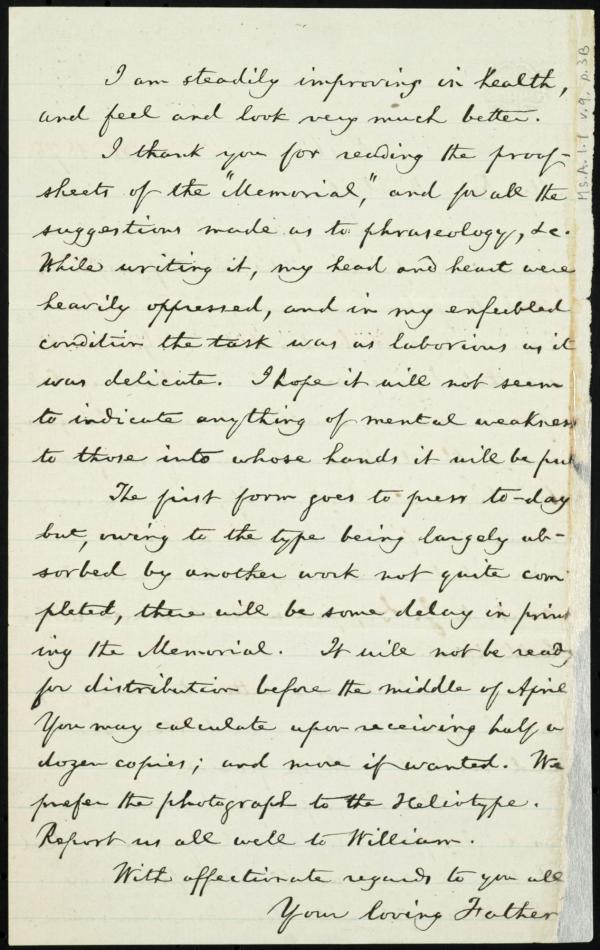 I am steadily improving in health,
and feel and look very much better.
I thank you for reading the proof-
sheets of the "Memorial," and for all the
suggestions made as to phraseology, &c.
While writing it, my head and heart were
heavily oppressed, and in my enfeebled
condition the task was as laborious as it
was delicate. I hope it will not seem
to indicate anything of mental weakness
to those into whose hands it will be put
The first form goes to press to-day
but, owing to the type being largely ab-
sorbed by another work not quite com
pleted, there will be some delay in print
ing the Memorial. It will not be ready
for distribution before the middle of April
You may calculate upon receiving half a
dozen copies; and more if wanted. We
prefer the photograph to the Heliotype.
Report us all well to William.
With affectionate regards to you all
Your loving Father
Ms.A.1.1 v.9, p.3B